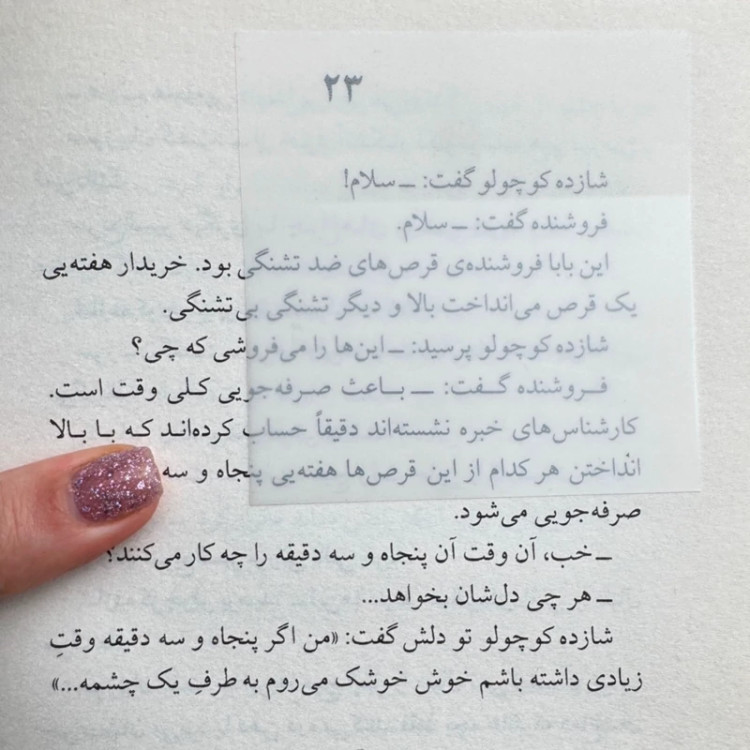 ۲۳
شازده کوچولو گفت: ـ سلام!
فروشنده گفت: ـ سلام.
این بابا فروشنده‌ی قرص‌های ضد تشنگی بود. خریدار هفته‌یی
یک قرص می‌انداخت بالا و دیگر تشنگی بی‌تشنگی.
شازده کوچولو پرسید: ـ این‌ها را می‌فروشی که چی؟
فـروشنده گـفت: ـ بـاعث صـرفه‌جویی کـلی وقت است.
کارشناس‌های خبره نشسته‌اند دقیقاً حساب کرده‌انـد کـه بـا بـالا
انداختن هر کدام از این قرص‌ها هفته‌یی پنجاه و سه
صرفه‌جویی می‌شود.
ـ خب، آن وقت آن پنجاه و سه دقیقه را چه کار می‌کنند؟
ـ هر چی دل‌شان بخواهد...
شازده کوچولو تو دلش گفت: «من اگر پنجاه و سه دقیقه وقتِ
زیادی داشته باشم خوش خوشک می‌روم به طرفِ یک چشمه...»